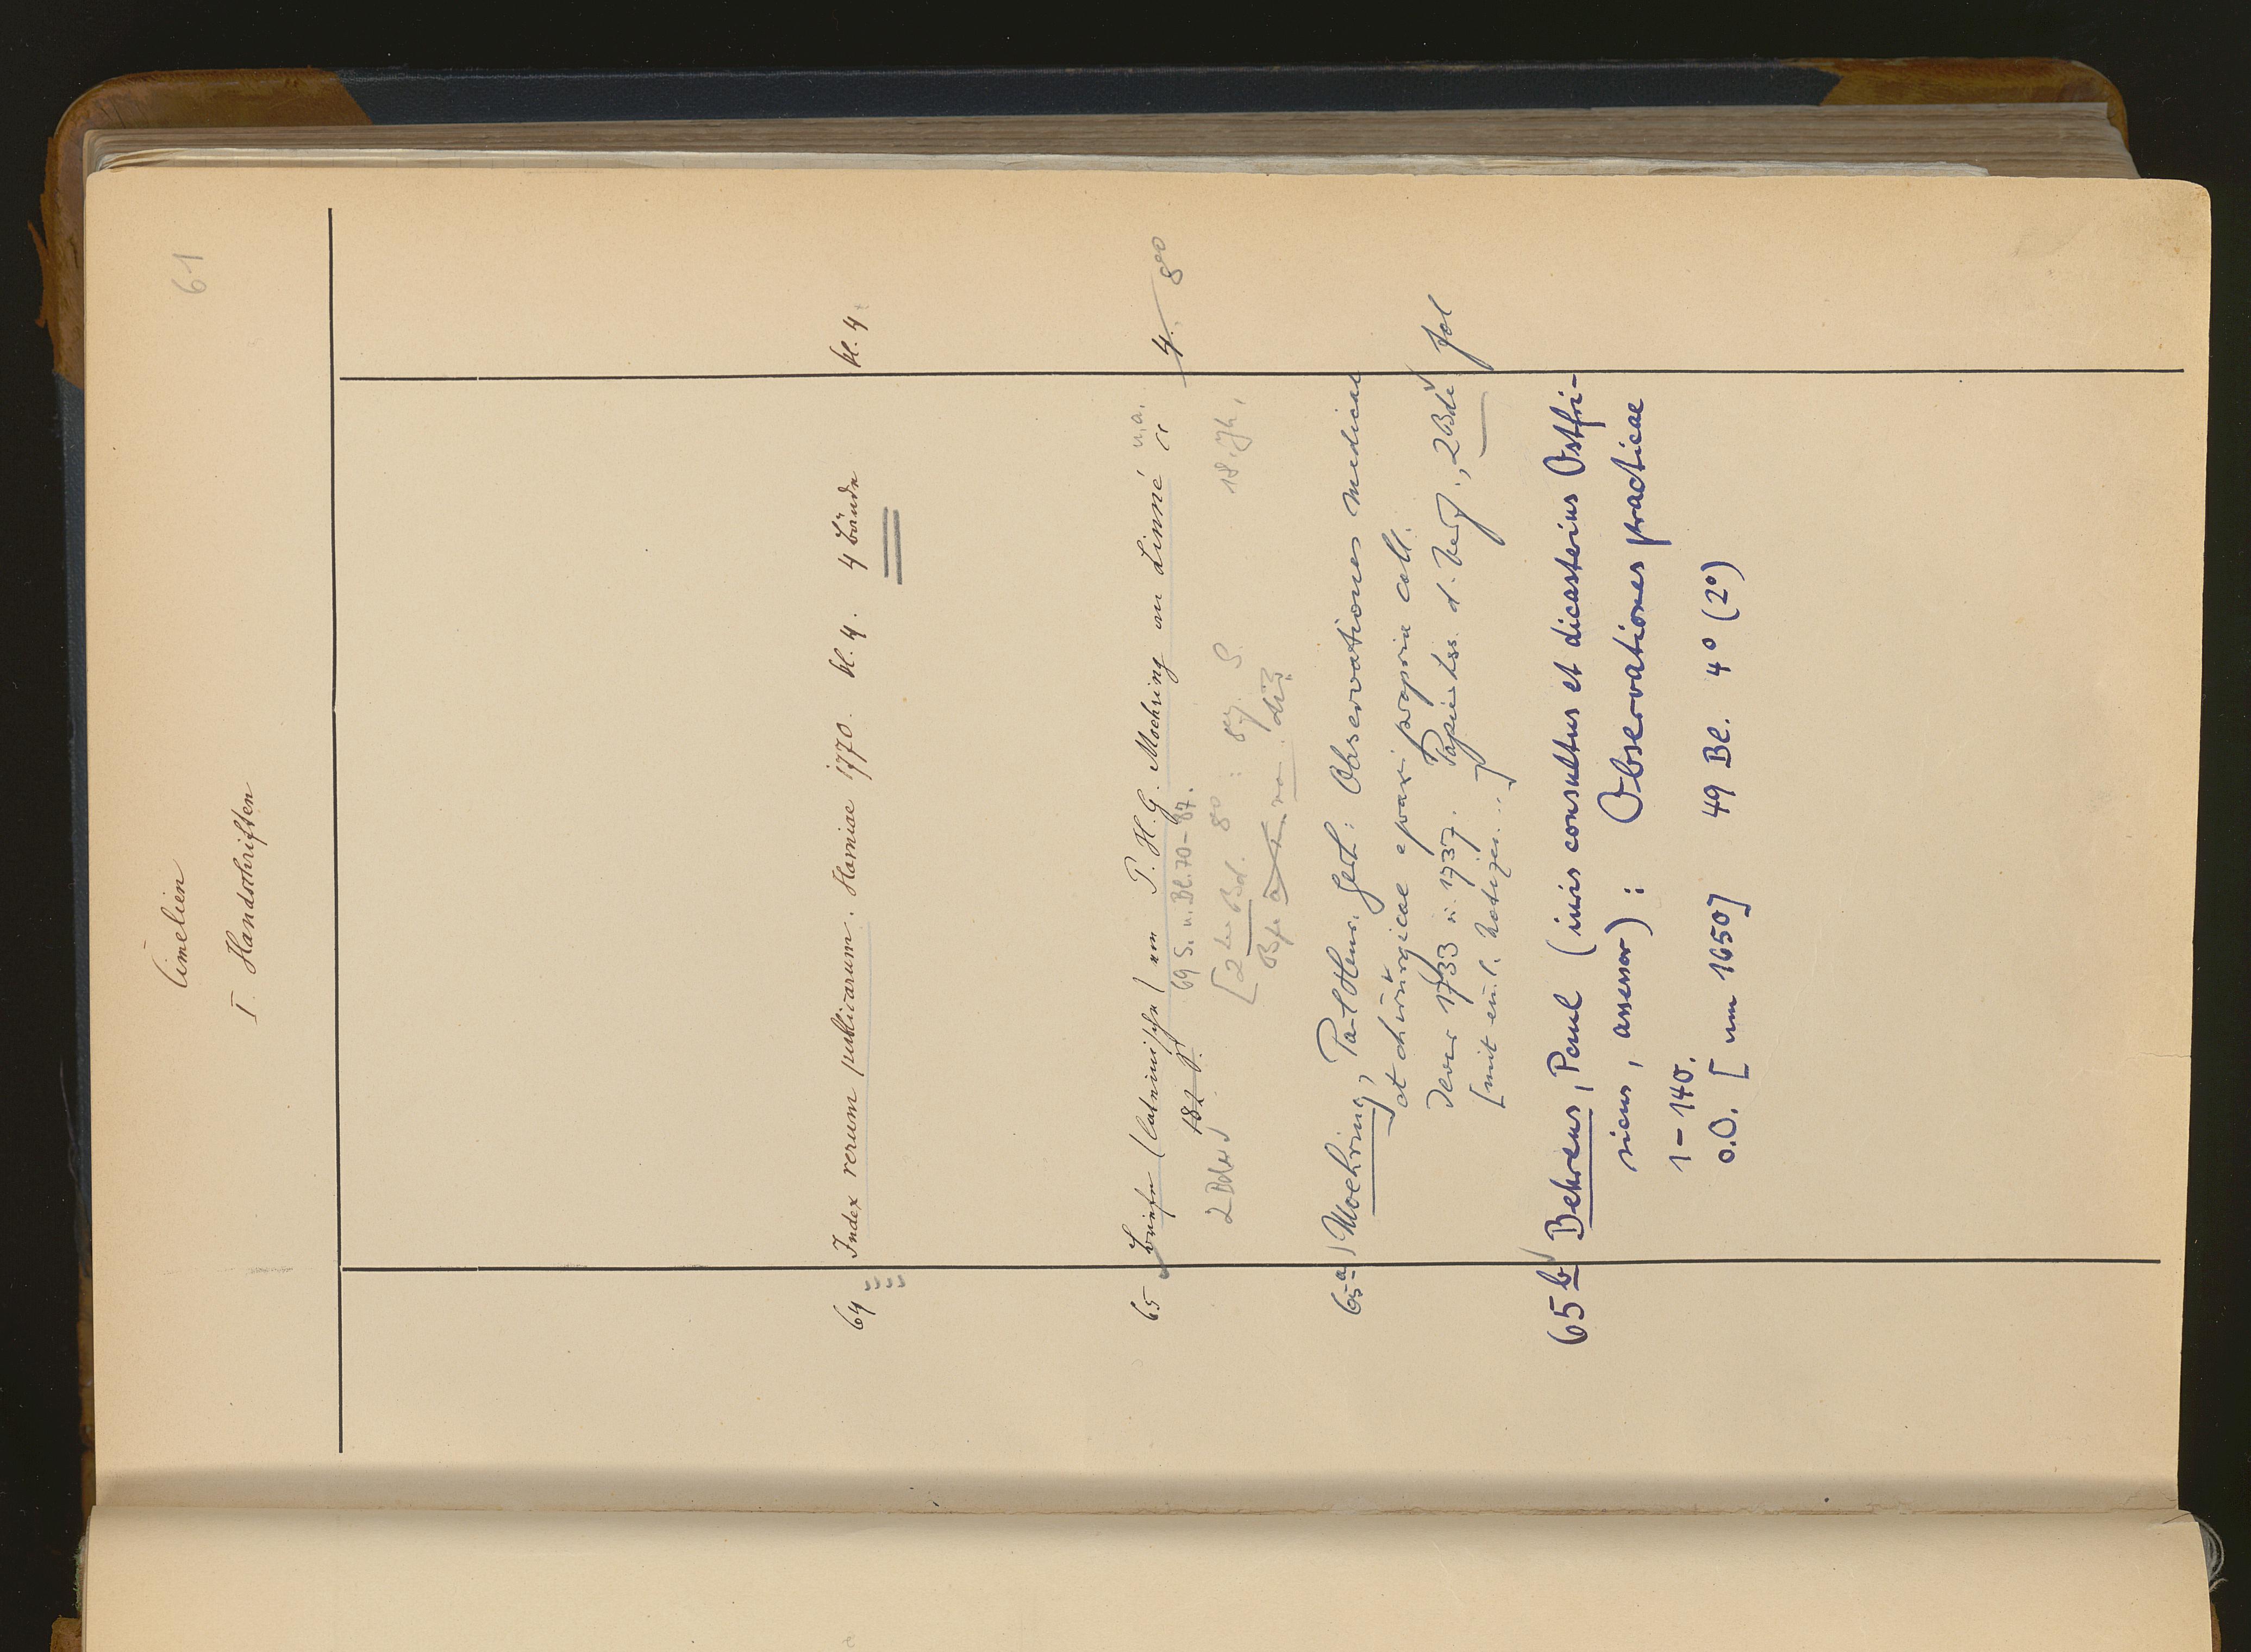 61
Cimelien
I. Handschriften
64 Index rerum publicarum. Horniae 1770. kl. 4. 4 Bände kl. 4.
65 Briefe (lateinische) von P. H. G. Moehring an Linné u.a. 4. 8°
69 S. u. Bl. 70-87.
2 Bde 18. Jh.
[2ter Bd. 8° : 87 S.
65a) Moehring, Paul Henr. Gerh.: Observationes medicae
et chirurgicae e praxi propria coll.
Jever 1733 u. 1737. Papierhss. d. Verf., 2 Bde fol
[mit Notizen...]
65b Behrens, Paul (iuris consultus et dicasterius Ostfri-
sicus, assessor): Observationes practicae
1-140.
o.O. [um 1650] 49 Bl. 4° (2°)